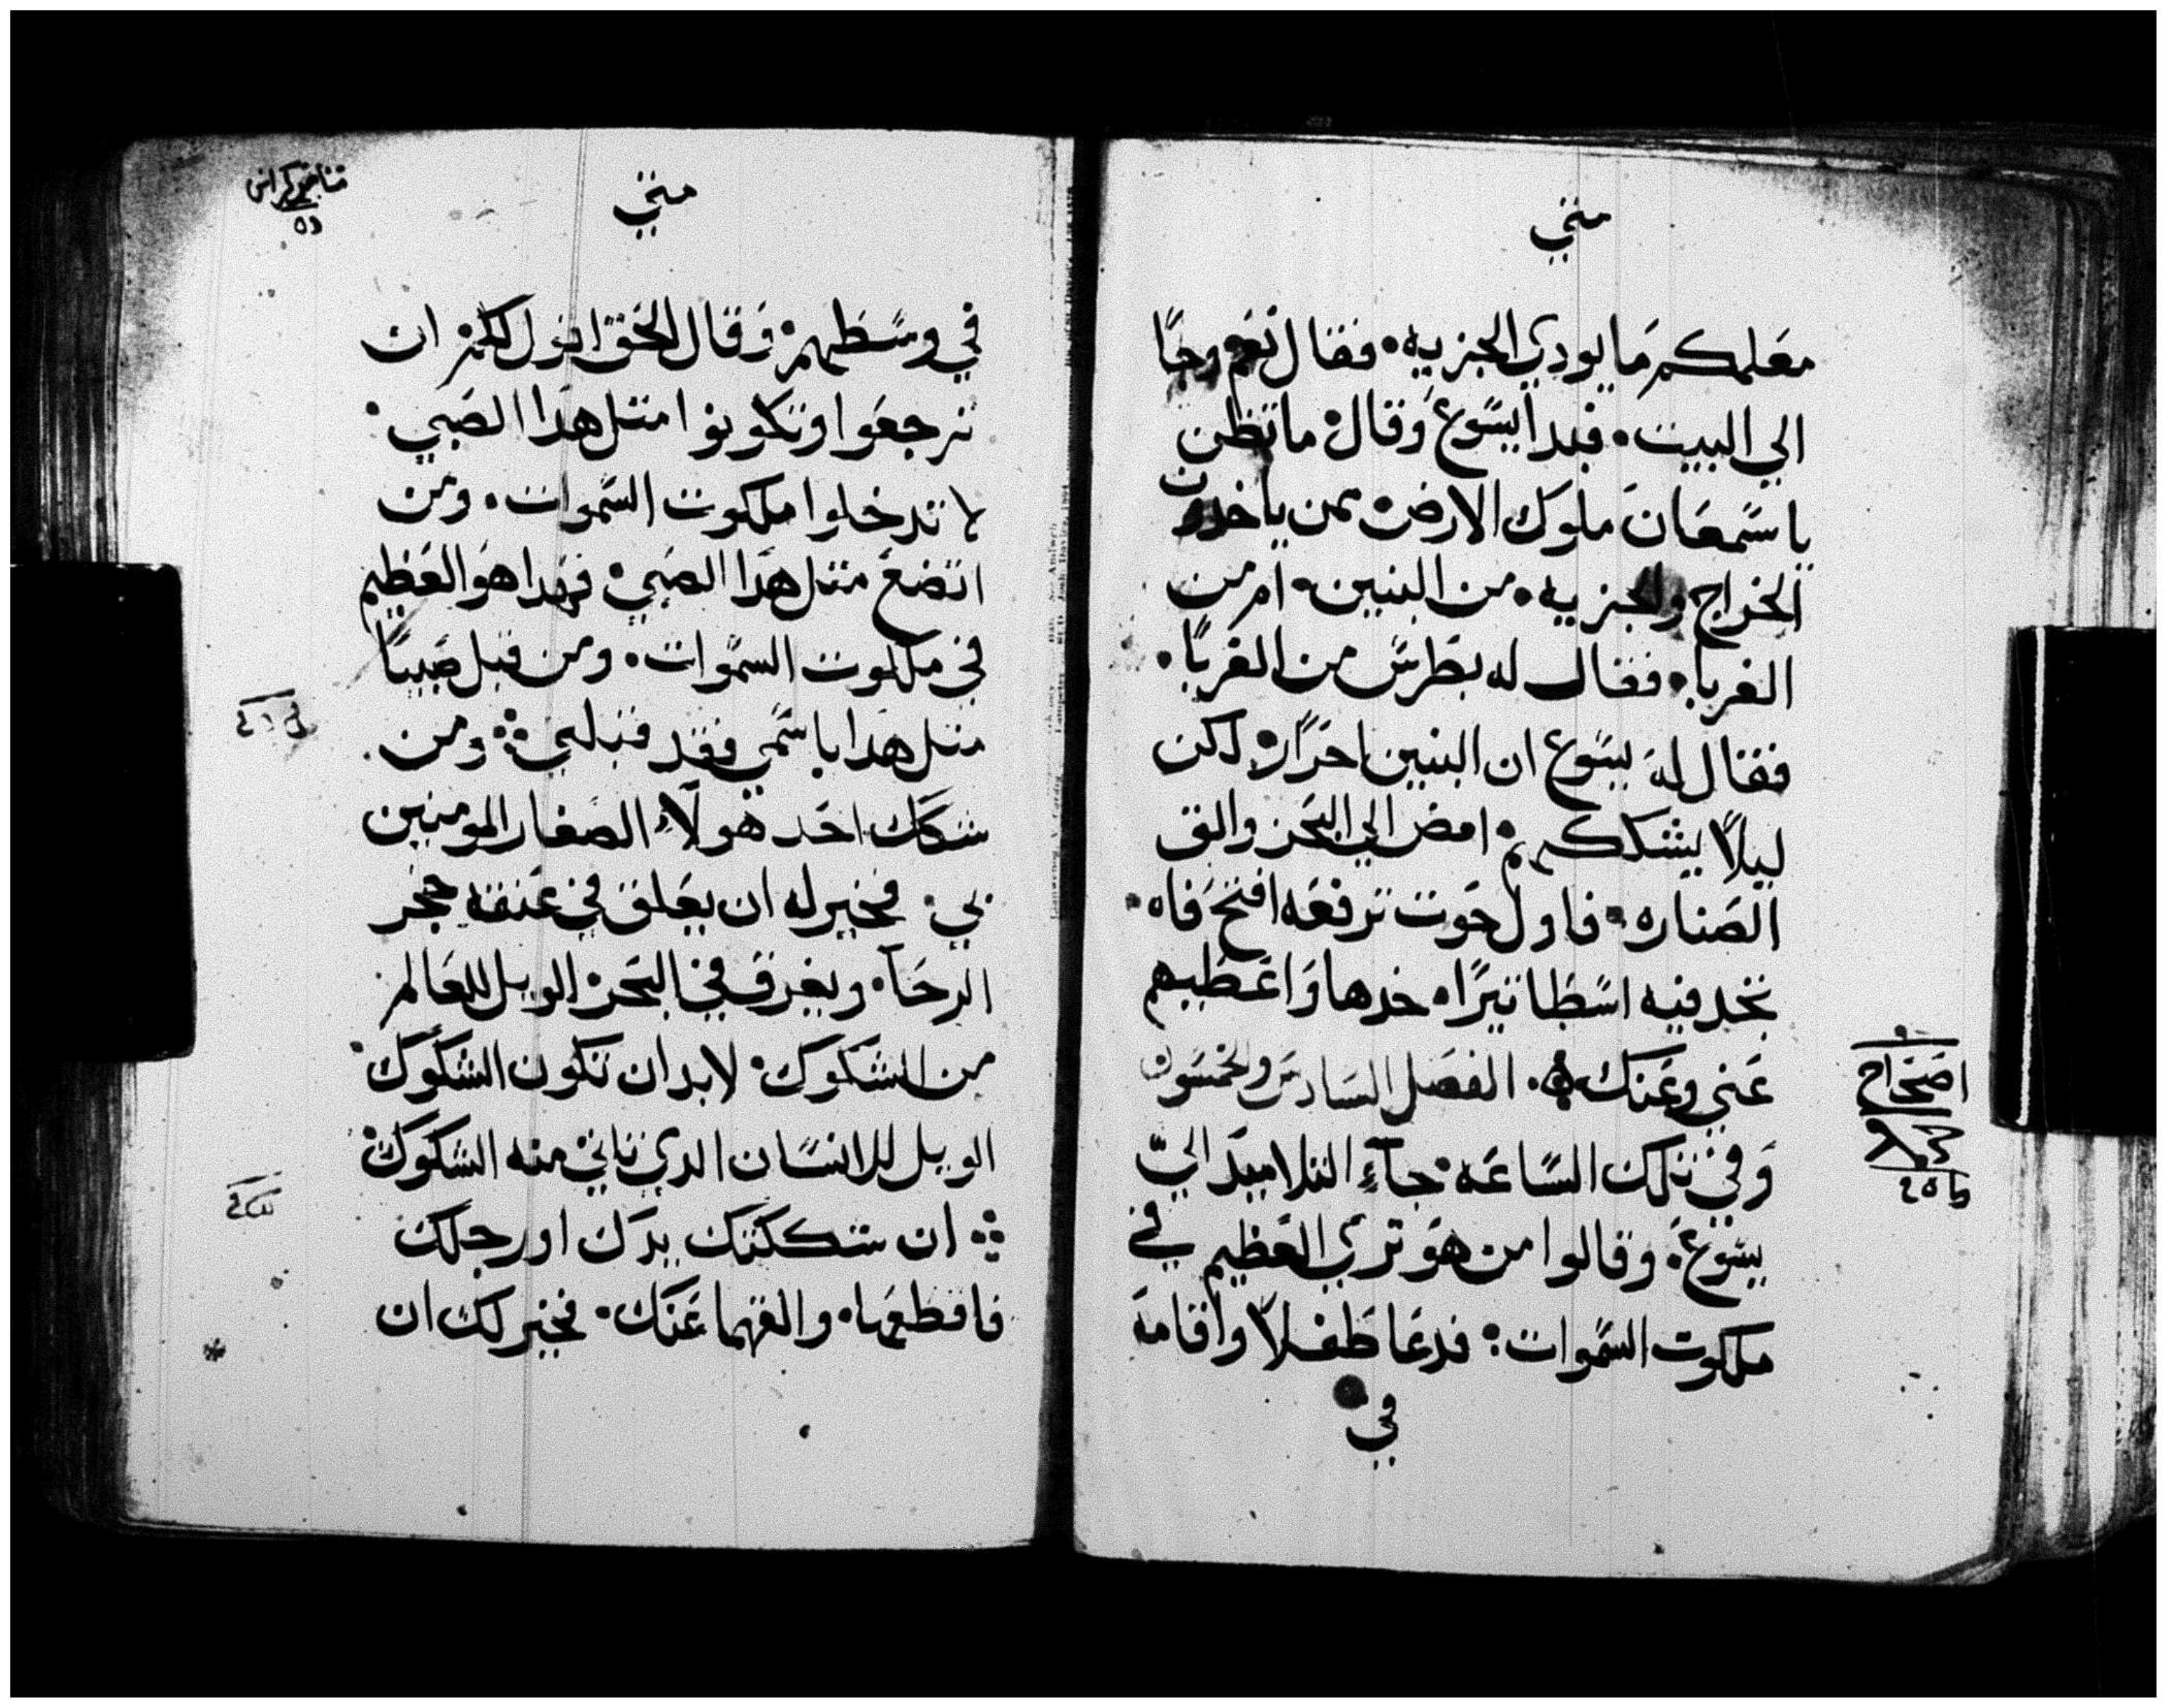 متي
معلمكم ما يودي الجزيه. فقال نعم وجا
الي البيت. فبدا يسوع وقال ما تظن
يا سمعان ملوك الارض ممن ياخدون
الخراج والجزيه. من البنين. ام من
الغربا. فقال له بطرس من الغربا.
فقال له يسوع ان البنين احرار لكن
ليلا يشككم امض الي البحر والق
الصناره. فاول حوت ترفعه افتح فاه.
تجد فيه اسطاتيرا. خدها واعطيهم
عني وعنك. الفصل السادس والخمسون
وفي تلك الساعه. جآء التلاميد الي
يسوع. وقالوا من هو تري العظيم في
ملكوت السموات: فدعا طفلا واقامه
في
اصحاح
متي
في وسطهم. وقال الحق اقول لكم ان
ترجعوا وتكونوا متل هدا الصبي.
لا تدخلوا ملكوت السموات. ومن
اتضع متل هدا الصبي. فهدا هو العظيم
في ملكوت السموات. ومن قبل صبيا
متل هدا باسمي فقد قبلني ومن
شكك احد هولآء الصغار المومنين
بي. فخير له ان يعلق في عنقه حجر
الرحا. ويغرق في البحر الويل للعالم
من الشكوك. لابد ان تكون الشكوك.
الويل للانسان الدي تاتي منه الشكوك
ان شككتك يدك او رجلك
فاقطعها. والقهما عنك. فخير لك ان